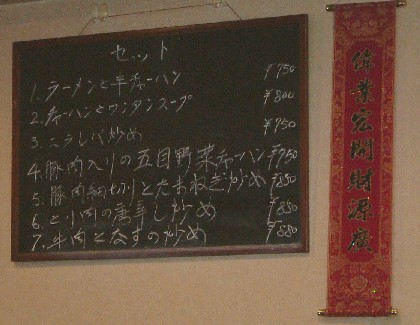 セット
1. ラーメンと半チャーハン ¥750
2. チャーハンとワンタンスープ ¥800
3. ニラレバ炒め ¥750
4. 豚肉入りの五目野菜チャーハン ¥750
5. 豚肉細切りとたまねぎ炒め ¥850
6. とり肉の唐辛し炒め ¥850
7. 牛肉となすの炒め ¥880
偉業宏開財源廣